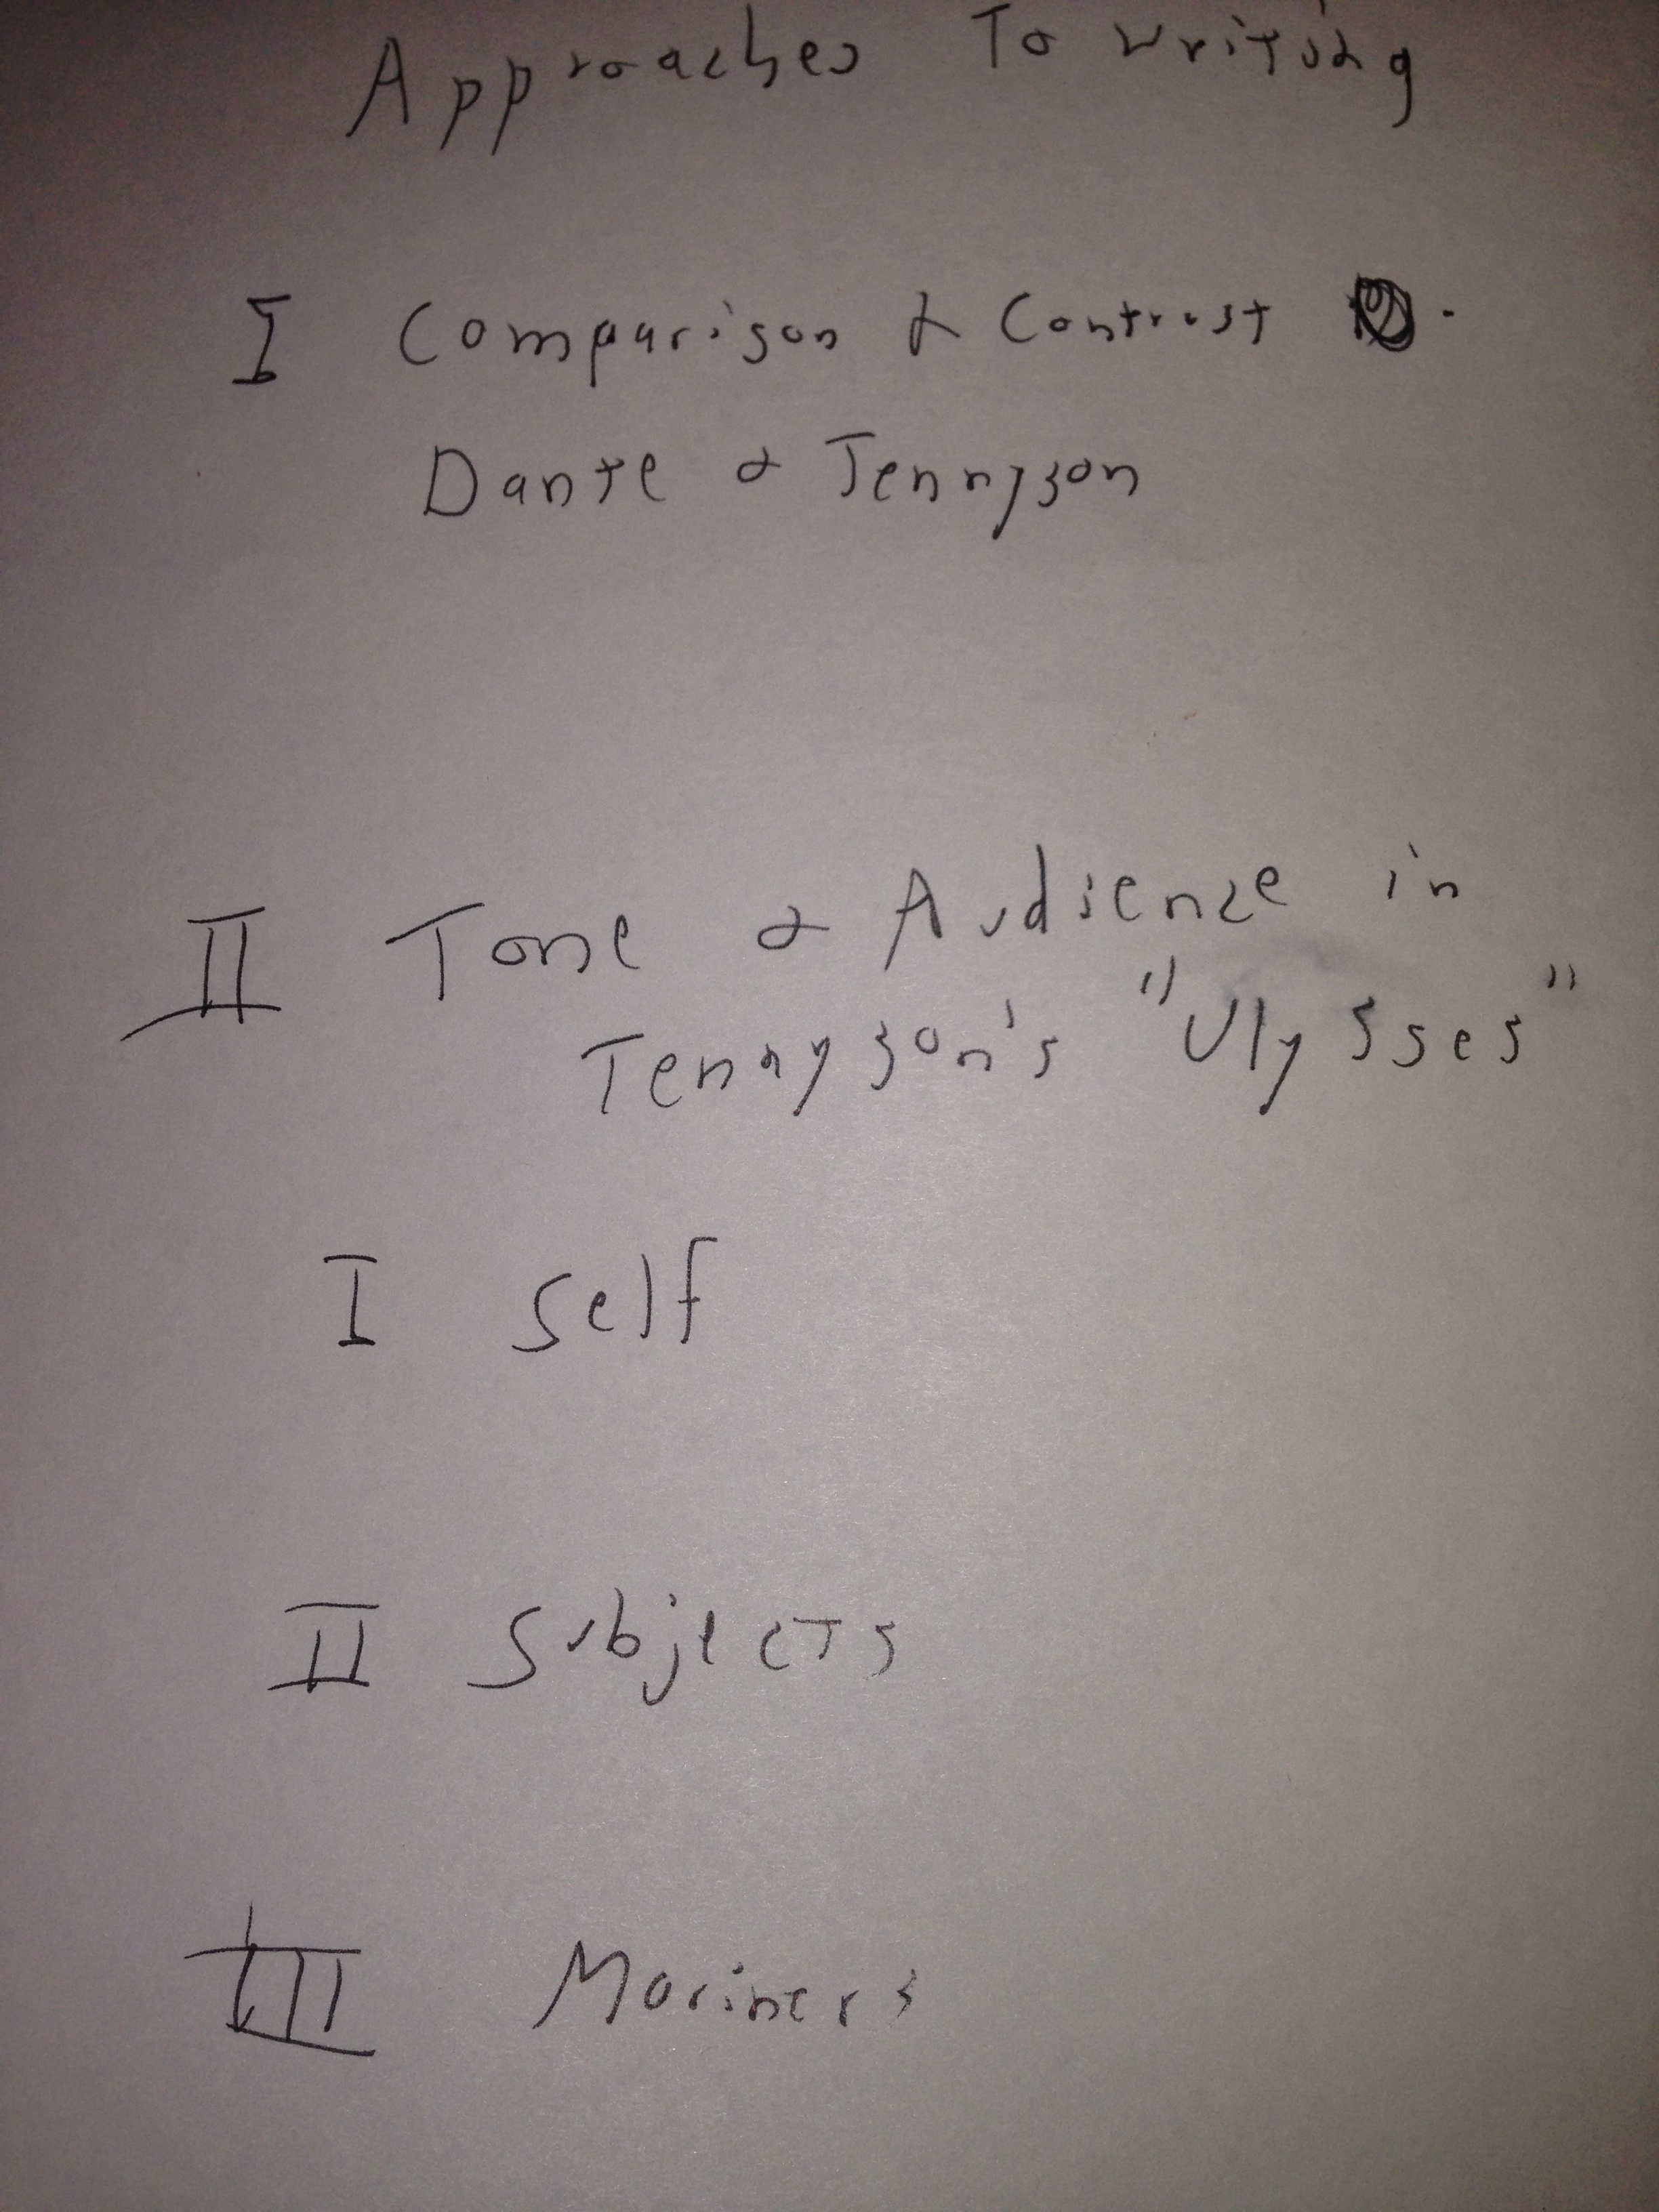 Approaches To writing
I Comparison & Contrast
Dante & Tennyson
II Tone & Audience in
Tennyson's "Ulysses"
I Self
II Subjects
III Mariners